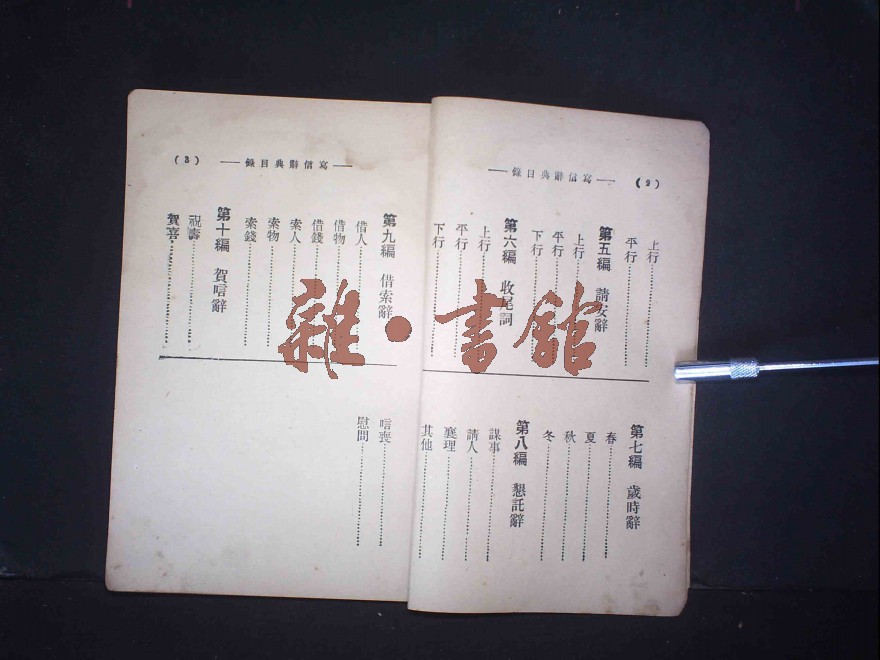 (2) — 寫信辭典目錄 —
上行
平行
第五編 請安辭
上行
平行
下行
第六編 收尾詞
上行
平行
下行
第七編 歲時辭
春
夏
秋
冬
第八編 懇託辭
謀事
請人
襄理
其他
— 寫信辭典目錄 — (3)
第九編 借索辭
借人
借物
借錢
索人
索物
索錢
第十編 賀唁辭
祝壽
賀喜
唁喪
慰問
雜·書館